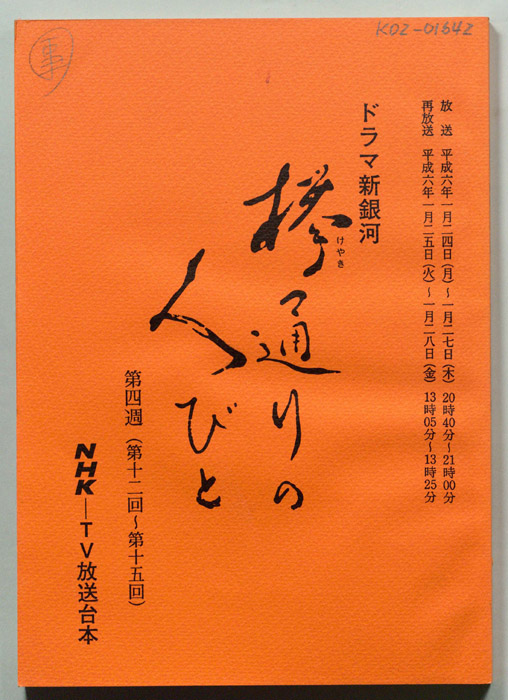 K02-01642
事
放送 平成六年一月二四日(月)〜一月二七日(木) 20時40分〜21時00分
再放送 平成六年一月二五日(火)〜一月二八日(金) 13時05分〜13時25分
ドラマ新銀河
欅通りの
けやき
人びと
第四週(第十二回〜第十五回)
NHK—TV放送台本